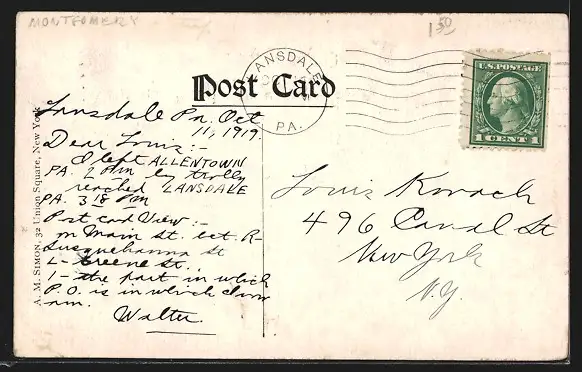 MONTGOMERY
1 50
LANSDALE
PA.
U.S. POSTAGE
1 CENT 1
Post Card
A. M. SIMON, 32 Union Square, New York
Lansdale Pa. Oct
11, 1919.
Dear Louis:-
I left ALLENTOWN
PA. 2 PM by trolly
reached LANSDALE
PA. 3 18 PM
Post card View:-
on Main St. bet. R-
Susquehanna St
L- Greene St.
1- the part in which
P.O. is in which
am.
Walter.
Louis
496 Canal St
New York
N.Y.